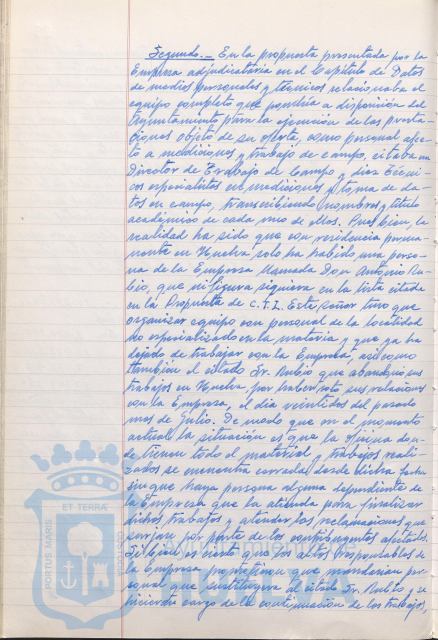 Segundo.- En la propuesta presentada por la
Empresa adjudicataria en el Capítulo de Datos
de medios personales y técnicos relacionaba el
equipo completo que pondría a disposición del
Ayuntamiento para la ejecución de las presta-
ciones objeto de su oferta, como personal afec-
to a mediciones y trabajo de campo, citaba un
Director de Trabajo de Campo y diez técni-
cos especialistas en mediciones y toma de da-
tos en campo, transcribiendo nombres y título
académico de cada uno de ellos. Pues bien, la
realidad ha sido que con residencia perma-
nente en Huelva solo ha habido una perso-
na de la Empresa llamada Don Antonio Ru-
bio, que ni figura siquiera en la lista citada
en la Propuesta de C.T.I. Este señor tuvo que
organizar equipo con personal de la localidad
no especializado en la materia y que ya ha
dejado de trabajar con la Empresa, así como
también el citado Sr. Rubio que abandonó sus
trabajos en Huelva, por haber roto sus relaciones
con la Empresa, el día veintidos del pasado
mes de Julio. De modo que en el momento
actual la situación es que la oficina don-
de tienen todo el material y trabajos reali-
zados se encuentra cerrada desde dicha fecha
sin que haya persona alguna dependiente de
la Empresa que la atienda para finalizar
dichos trabajos y atender las reclamaciones que
surjan por parte de los contribuyentes afectados.
Si bien es cierto que los altos responsables de
la Empresa prometieron que mandarían per-
sonal que sustituyera al citado Sr. Rubio y se
hicieran cargo de la continuación de los trabajos,
ET TERRAE
PORTUS MARIS
CUSTODIA
HUELVA